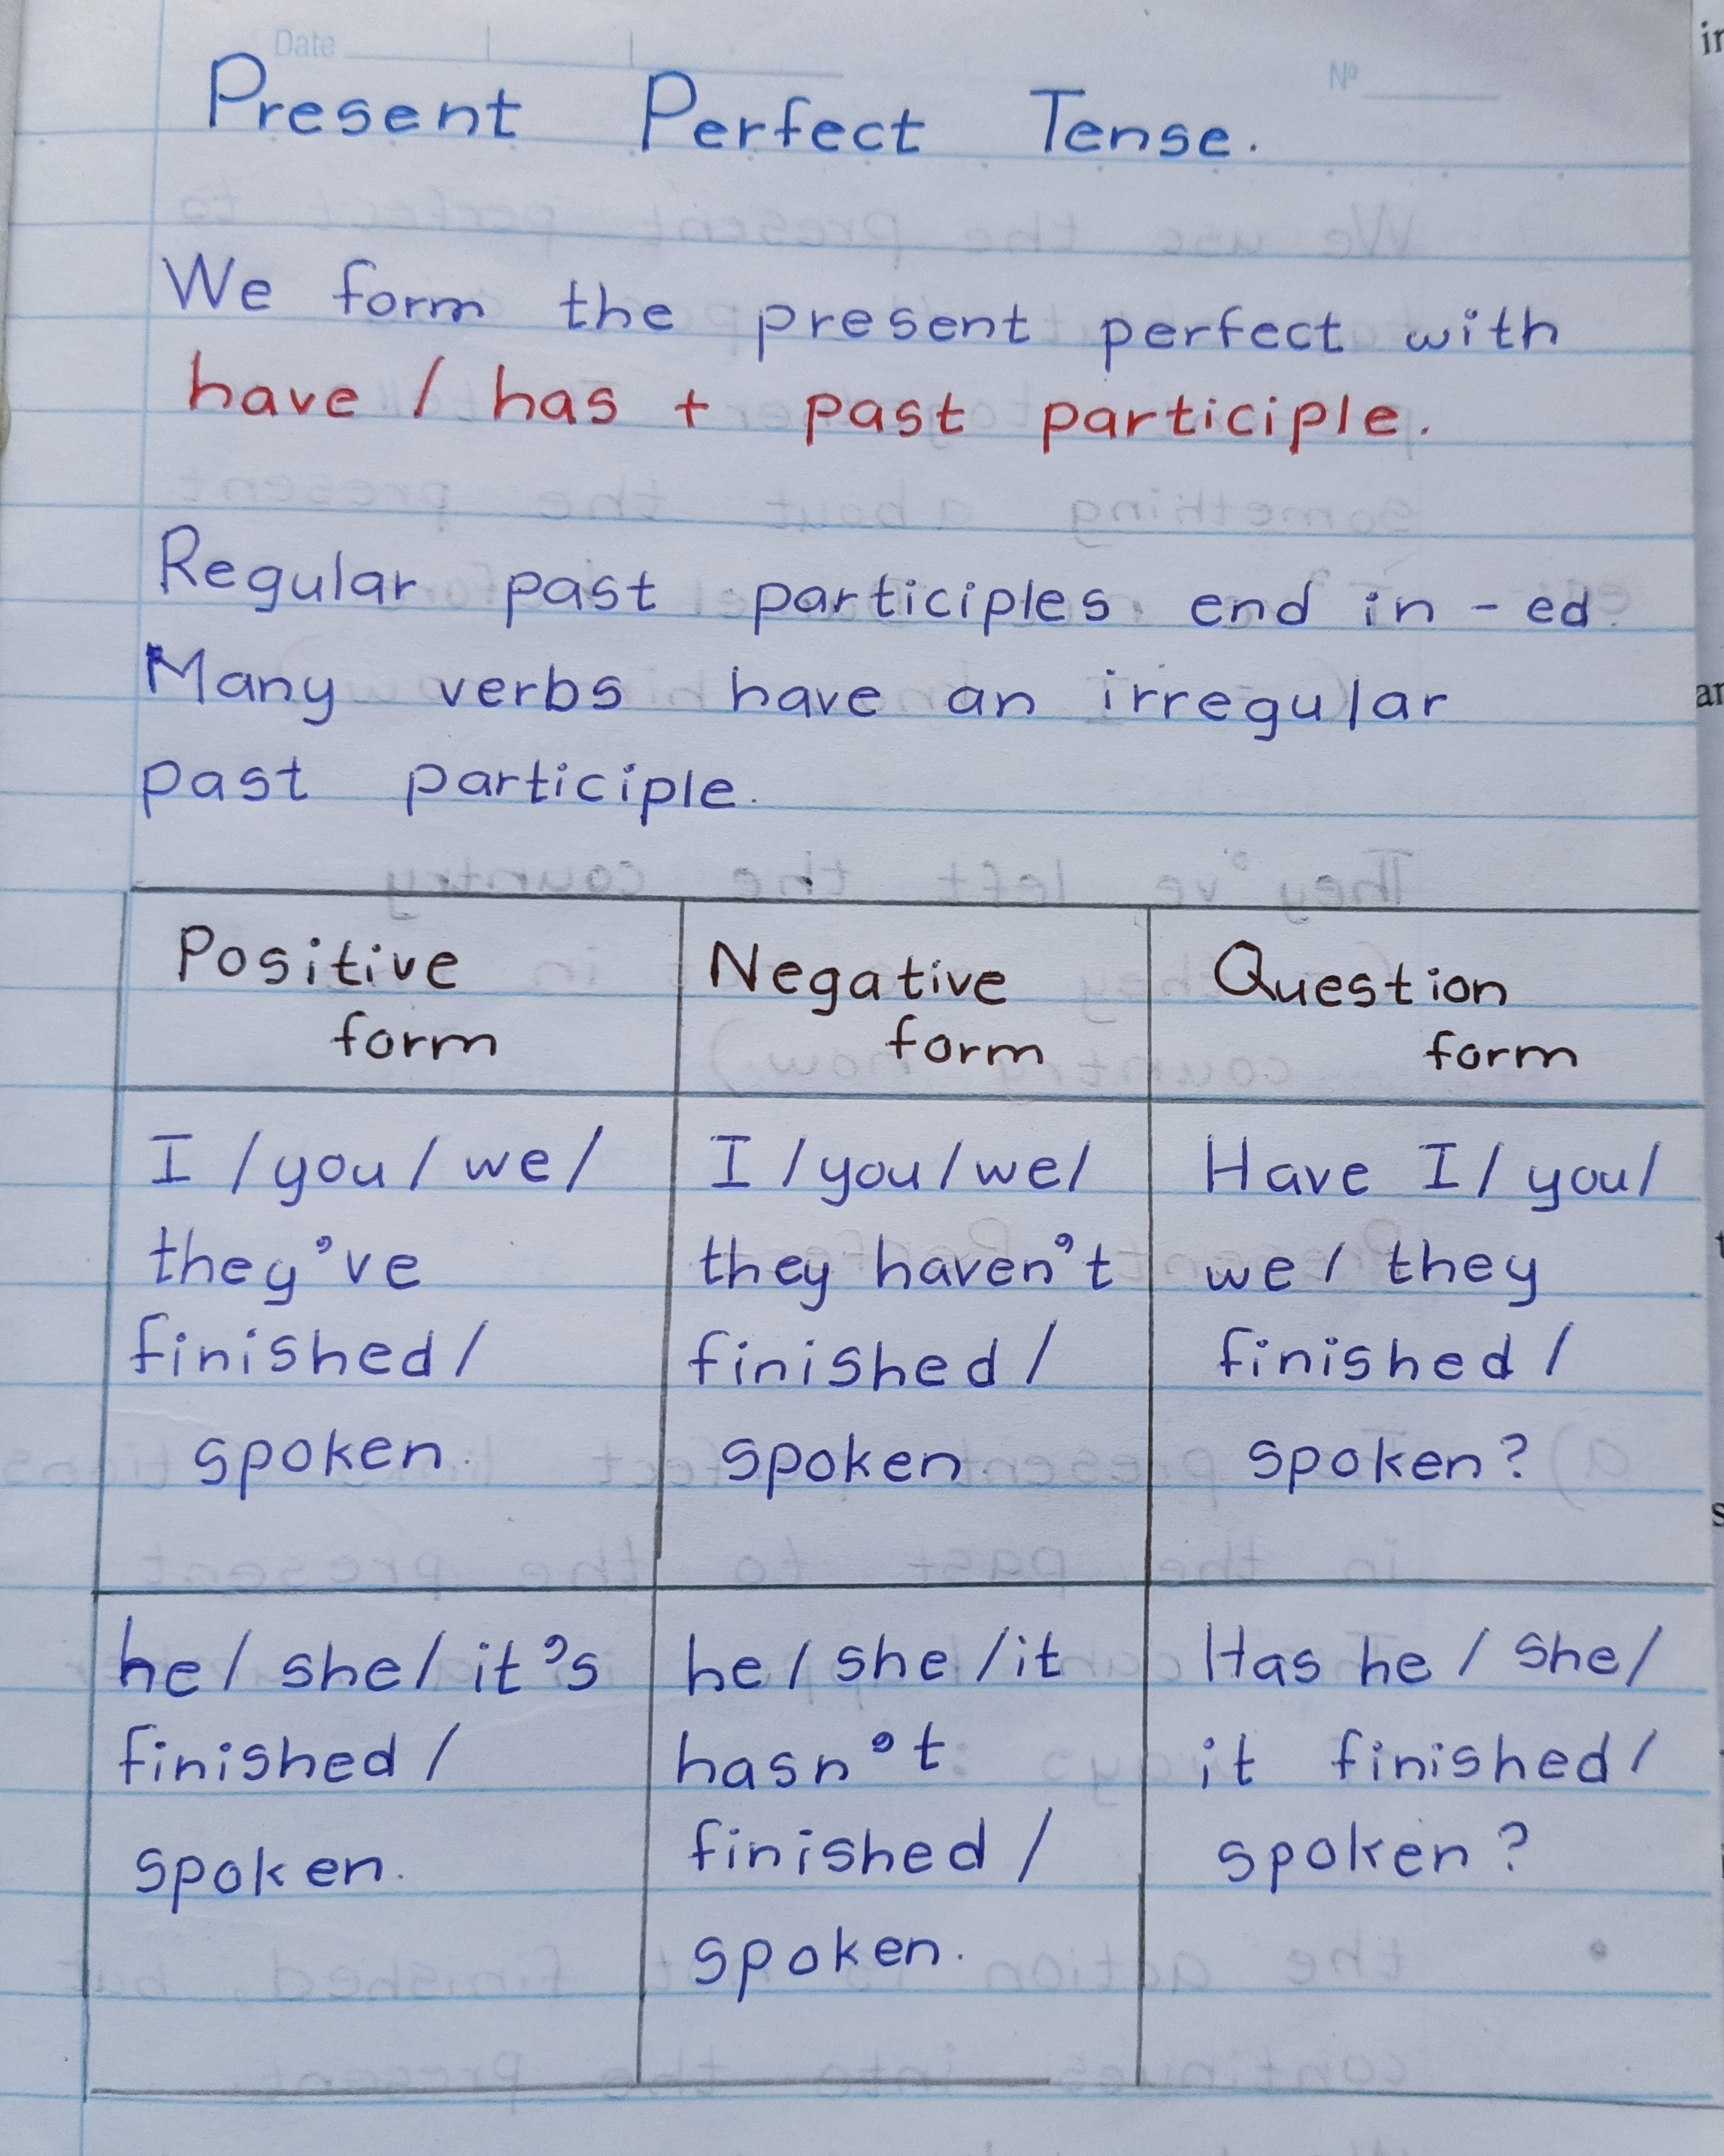 Date
Nº
Present Perfect Tense.
We form the present perfect with
have / has + past participle.
Regular past participles end in - ed.
Many verbs have an irregular
past participle.
Positive form
Negative form
Question form
I / you / we /
they've
finished /
spoken.
I / you / we /
they haven't
finished /
spoken.
Have I / you /
we / they
finished /
spoken?
he / she / it's
finished /
spoken.
he / she / it
hasn't
finished /
spoken.
Has he / she /
it finished /
spoken?